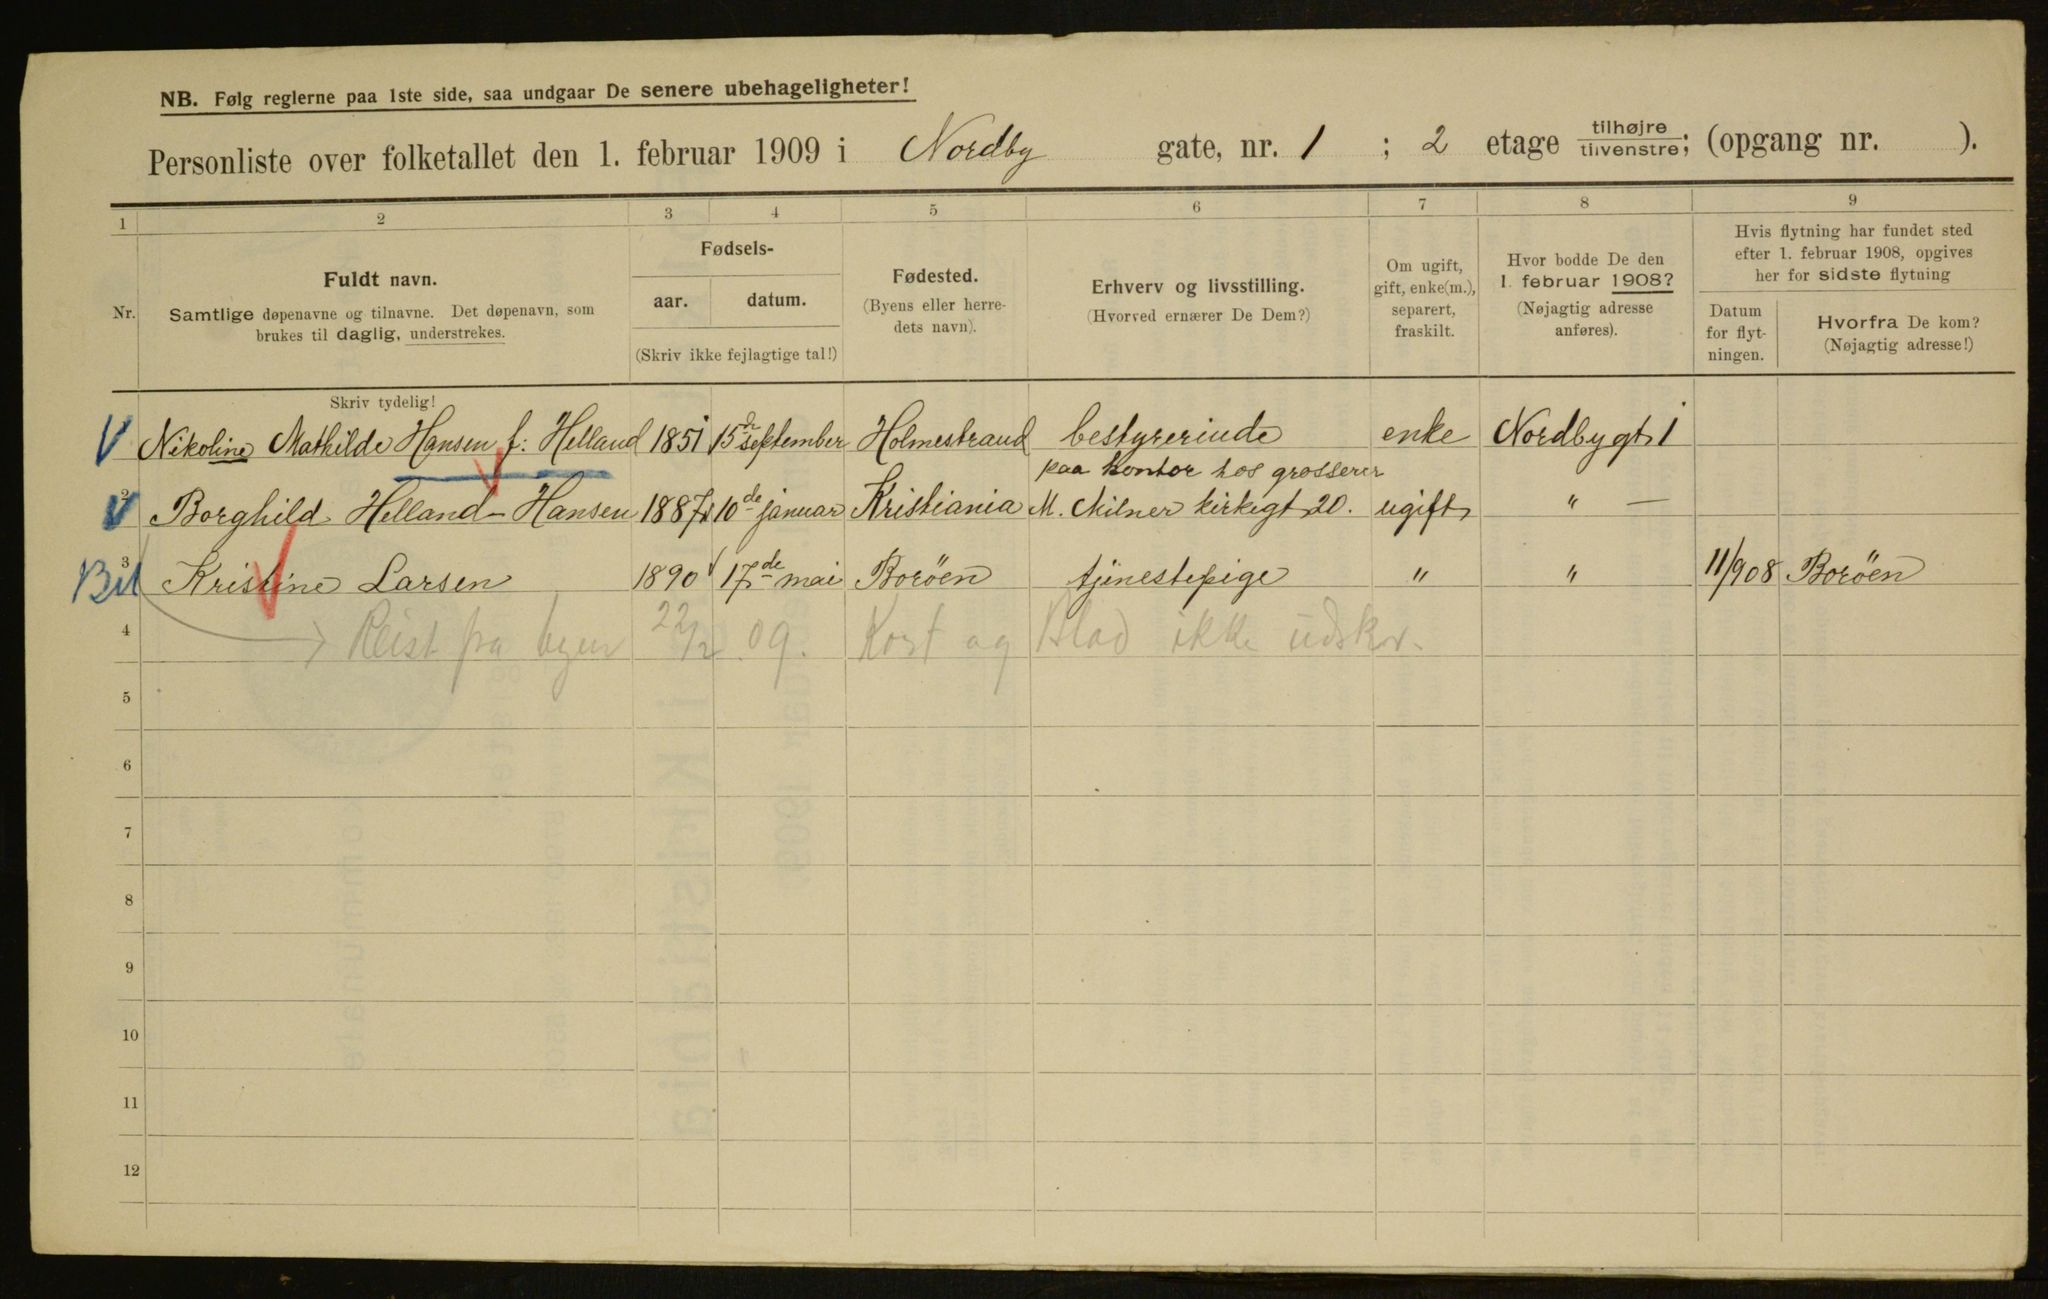 NB. Følg reglerne paa 1ste side, saa undgaar De senere ubehageligheter!
Personliste over folketallet den 1. februar 1909 i Nordby gate, nr. 1 ; 2 etage tilhøjre tilvenstre; (opgang nr. ).
1 2 3 4 5 6 7 8 9
Nr.
Fuldt navn.
Samtlige døpenavne og tilnavne. Det døpenavn, som
brukes til daglig, understrekes.
Fødsels-
aar. datum.
(Skriv ikke fejlagtige tal!)
Fødested.
(Byens eller herre-
dets navn).
Erhverv og livsstilling.
(Hvorved ernærer De Dem?)
Om ugift,
gift, enke(m.),
separert,
fraskilt.
Hvor bodde De den
1. februar 1908?
(Nøjagtig adresse
anføres).
Hvis flytning har fundet sted
efter 1. februar 1908, opgives
her for sidste flytning
Datum
for flyt-
ningen.
Hvorfra De kom?
(Nøjagtig adresse!)
Skriv tydelig!
V Nikoline Mathilde Hansen f: Helland 1851 15 september Holmestrand bestyrerinde enke Nordbygt 1
paa kontor hos grosserer
V 2 Borghild Helland-Hansen 1887 10de januar Kristiania M. Milner kirkegt 20. ugift " —
3 Kristine Larsen 1890 17de mai Borøen tjenestepige " " 11/908 Borøen
4 Reist fra byen 22/2 09. Kort og Blad ikke udskr.
5
6
7
8
9
10
11
12